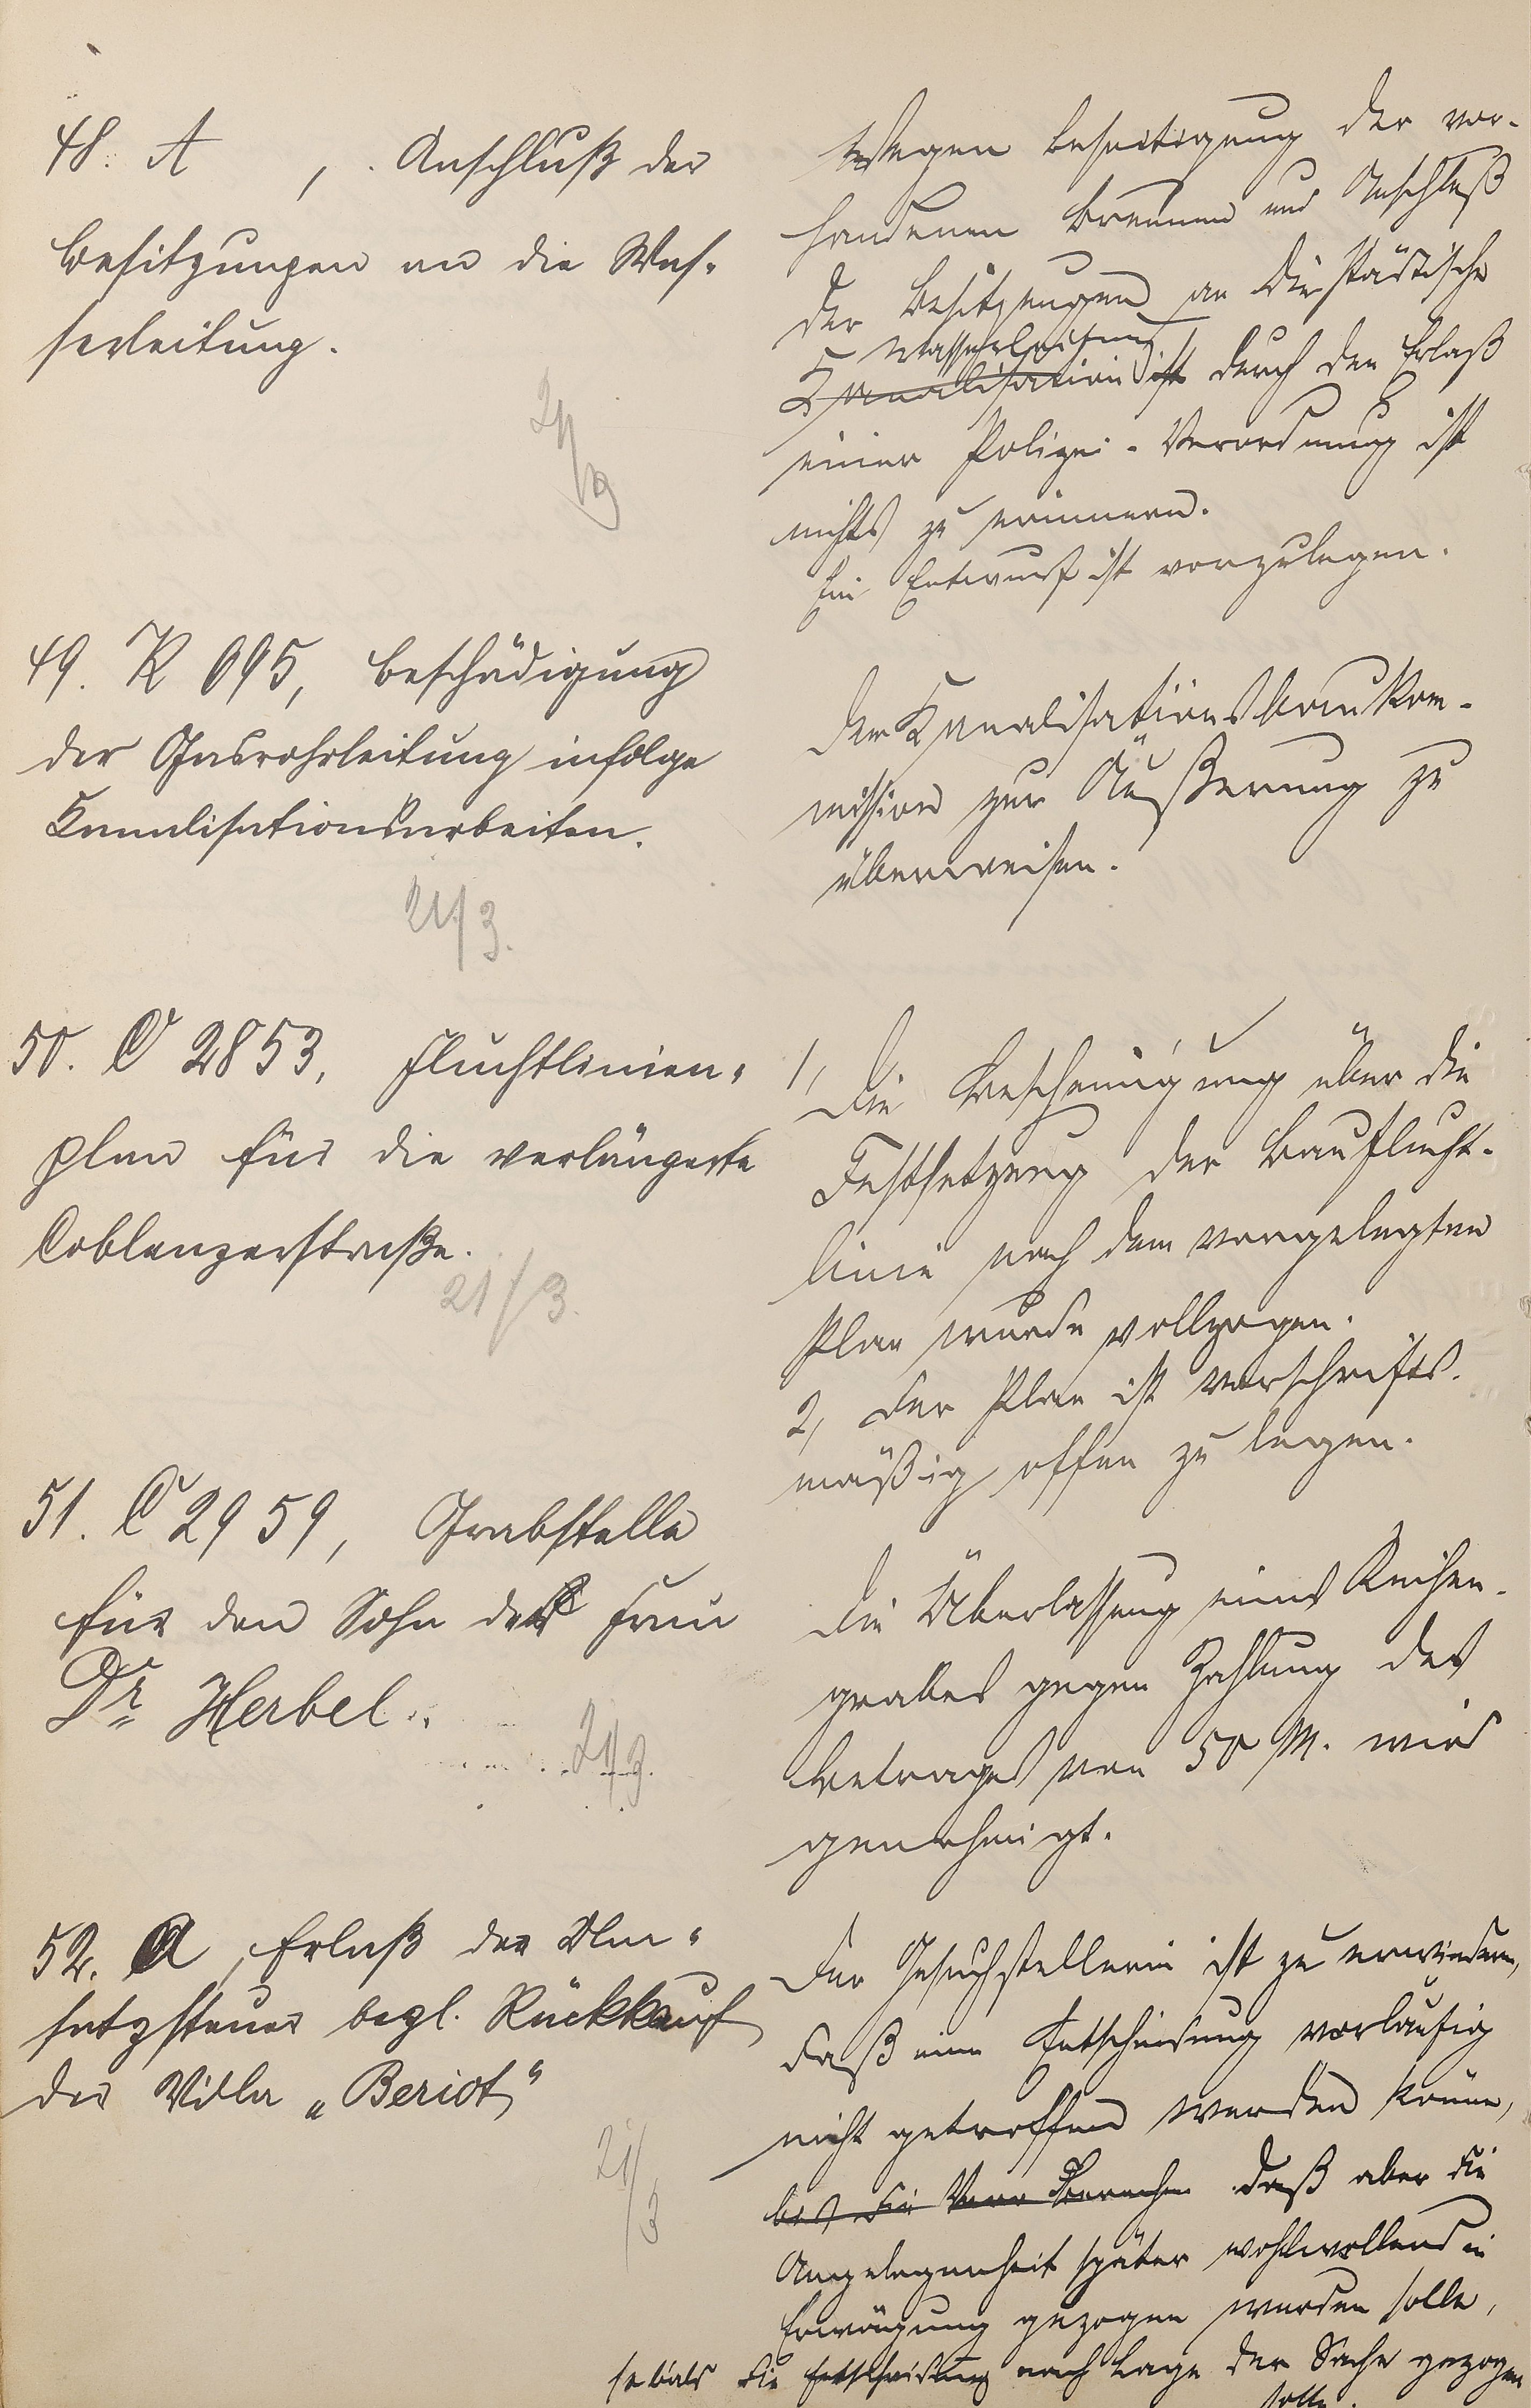 48. A , Anschluß der
Besitzungen an die Was-
serleitung.
21/3
Wegen Beseitigung der vor-
handenen Brunnen und Anschluß
der Besitzungen an die städtische
Wasserleitung
Kanalisation ist durch den Erlaß
einer Polizei-Verordnung ist
nichts zu erinnern.
Ein Entwurf ist vorzulegen.
49. K 695, Beschädigung
der Gasrohrleitung infolge
Kanalisationsarbeiten.
21/3.
Der Kanalisationsbaukom-
mission zur Äußerung zu
überweisen.
50. C 2853, Fluchtlinien-
plan für die verlängerte
Coblenzerstraße.
21/3.
1, Die Bescheinigung über die
Festsetzung der Bauflucht-
linie nach dem vorgelegten
Plan wurde vollzogen.
2, Der Plan ist vorschrifts-
mäßig offen zu legen.
51. C 2959, Grabstelle
für den Sohn der Frau
Dr. Herbel.
21/3.
Die Überlassung eines Reihen-
grabes gegen Zahlung des
Betrages von 50 M. wird
genehmigt.
52. A, Erlaß der Um-
satzsteuer bezl. Rückkauf
der Villa „Beriot"
21/3
Der Gesuchstellerin ist zu erwiedern,
daß eine Entscheidung vorläufig
nicht getroffen werden könne,
bis die daß aber die
Angelegenheit später wohlwollend in
Erwägung gezogen werden solle,
sobald die Entscheidung nach Lage der Sache gezogen
solle.